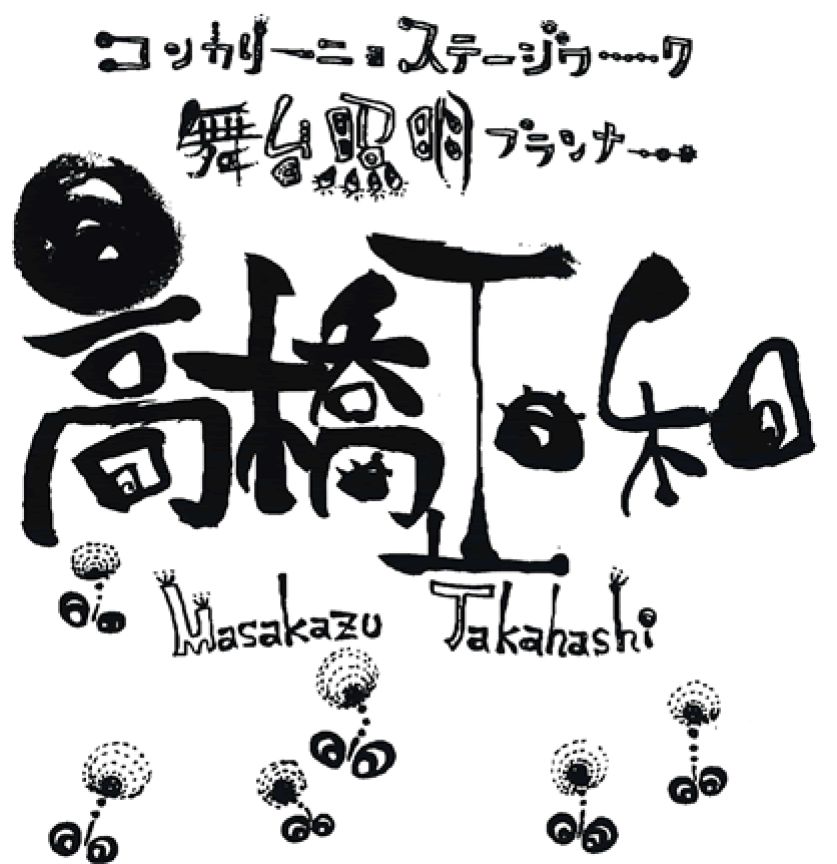 コンカリーニョステージワーク
舞台照明プランナー
高橋正和
Masakazu Takahashi